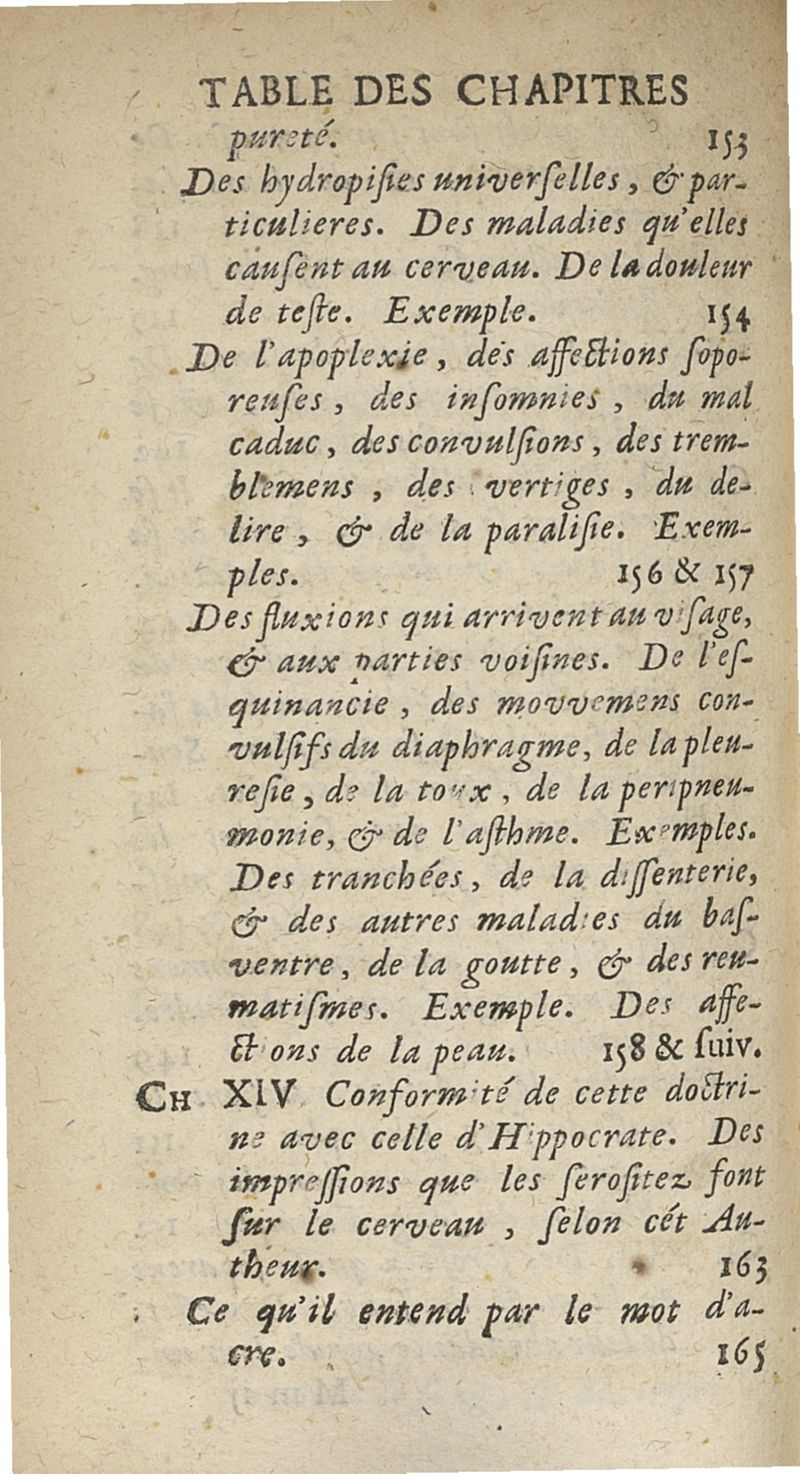 TABLE DES CHAPITRES
pureté. 153
Des hydropiſies univerſelles, & par-
ticulieres. Des maladies qu'elles
cauſent au cerveau. De la douleur
de teſte. Exemple. 154
De l'apoplexie, des affections ſopo-
reuſes, des inſomnies, du mal
caduc, des convulſions, des trem-
blemens, des vertiges, du de-
lire, & de la paraliſie. Exem-
ples. 156 & 157
Des fluxions qui arrivent au viſage,
& aux parties voiſines. De l'eſ-
quinancie, des mouvemens con-
vulſifs du diaphragme, de la pleu-
reſie, de la toux, de la peripneu-
monie, & de l'aſthme. Exemples.
Des tranchées, de la diſſenterie,
& des autres maladies du baſ-
ventre, de la goutte, & des reu-
matiſmes. Exemple. Des affe-
ctions de la peau. 158 & ſuiv.
CH XIV Conformité de cette doctri-
ne avec celle d'Hippocrate. Des
impreſſions que les ſeroſitez font
ſur le cerveau, ſelon cét Au-
theur. 163
Ce qu'il entend par le mot d'a-
cre. 165